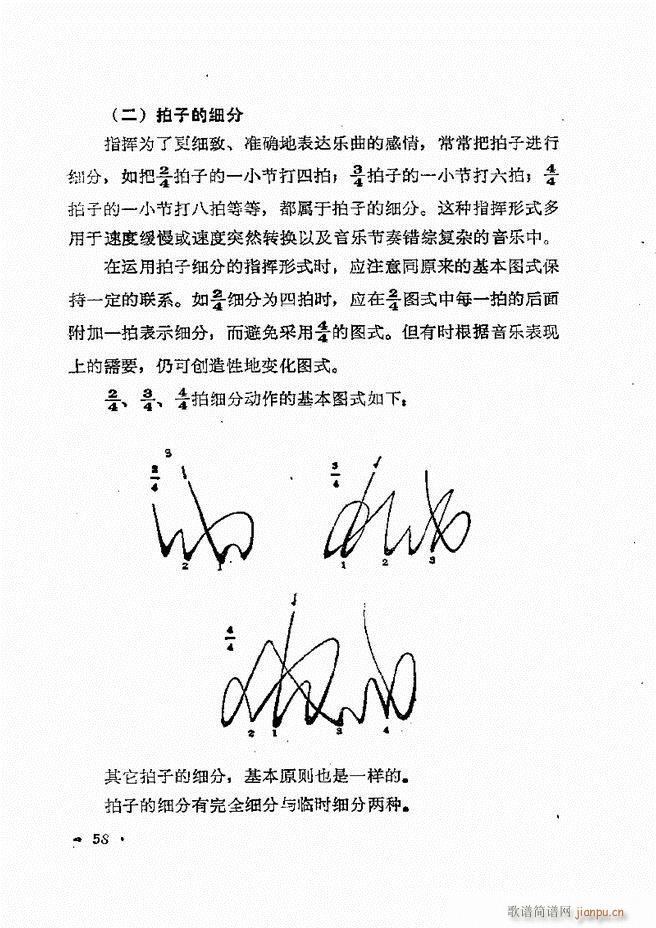 （二）拍子的细分
指挥为了更细致、准确地表达乐曲的感情，常常把拍子进行
细分，如把2/4拍子的一小节打四拍；3/4拍子的一小节打六拍；4/4
拍子的一小节打八拍等等，都属于拍子的细分。这种指挥形式多
用于速度缓慢或速度突然转换以及音乐节奏错综复杂的音乐中。
在运用拍子细分的指挥形式时，应注意同原来的基本图式保
持一定的联系。如2/4细分为四拍时，应在2/4图式中每一拍的后面
附加一拍表示细分，而避免采用4/4的图式。但有时根据音乐表现
上的需要，仍可创造性地变化图式。
2/4、3/4、4/4拍细分动作的基本图式如下：
2/4
3/4
2 1
1 2 3
4/4
2 1 3 4
其它拍子的细分，基本原则也是一样的。
拍子的细分有完全细分与临时细分两种。
58
歌谱简谱网 jianpu.cn